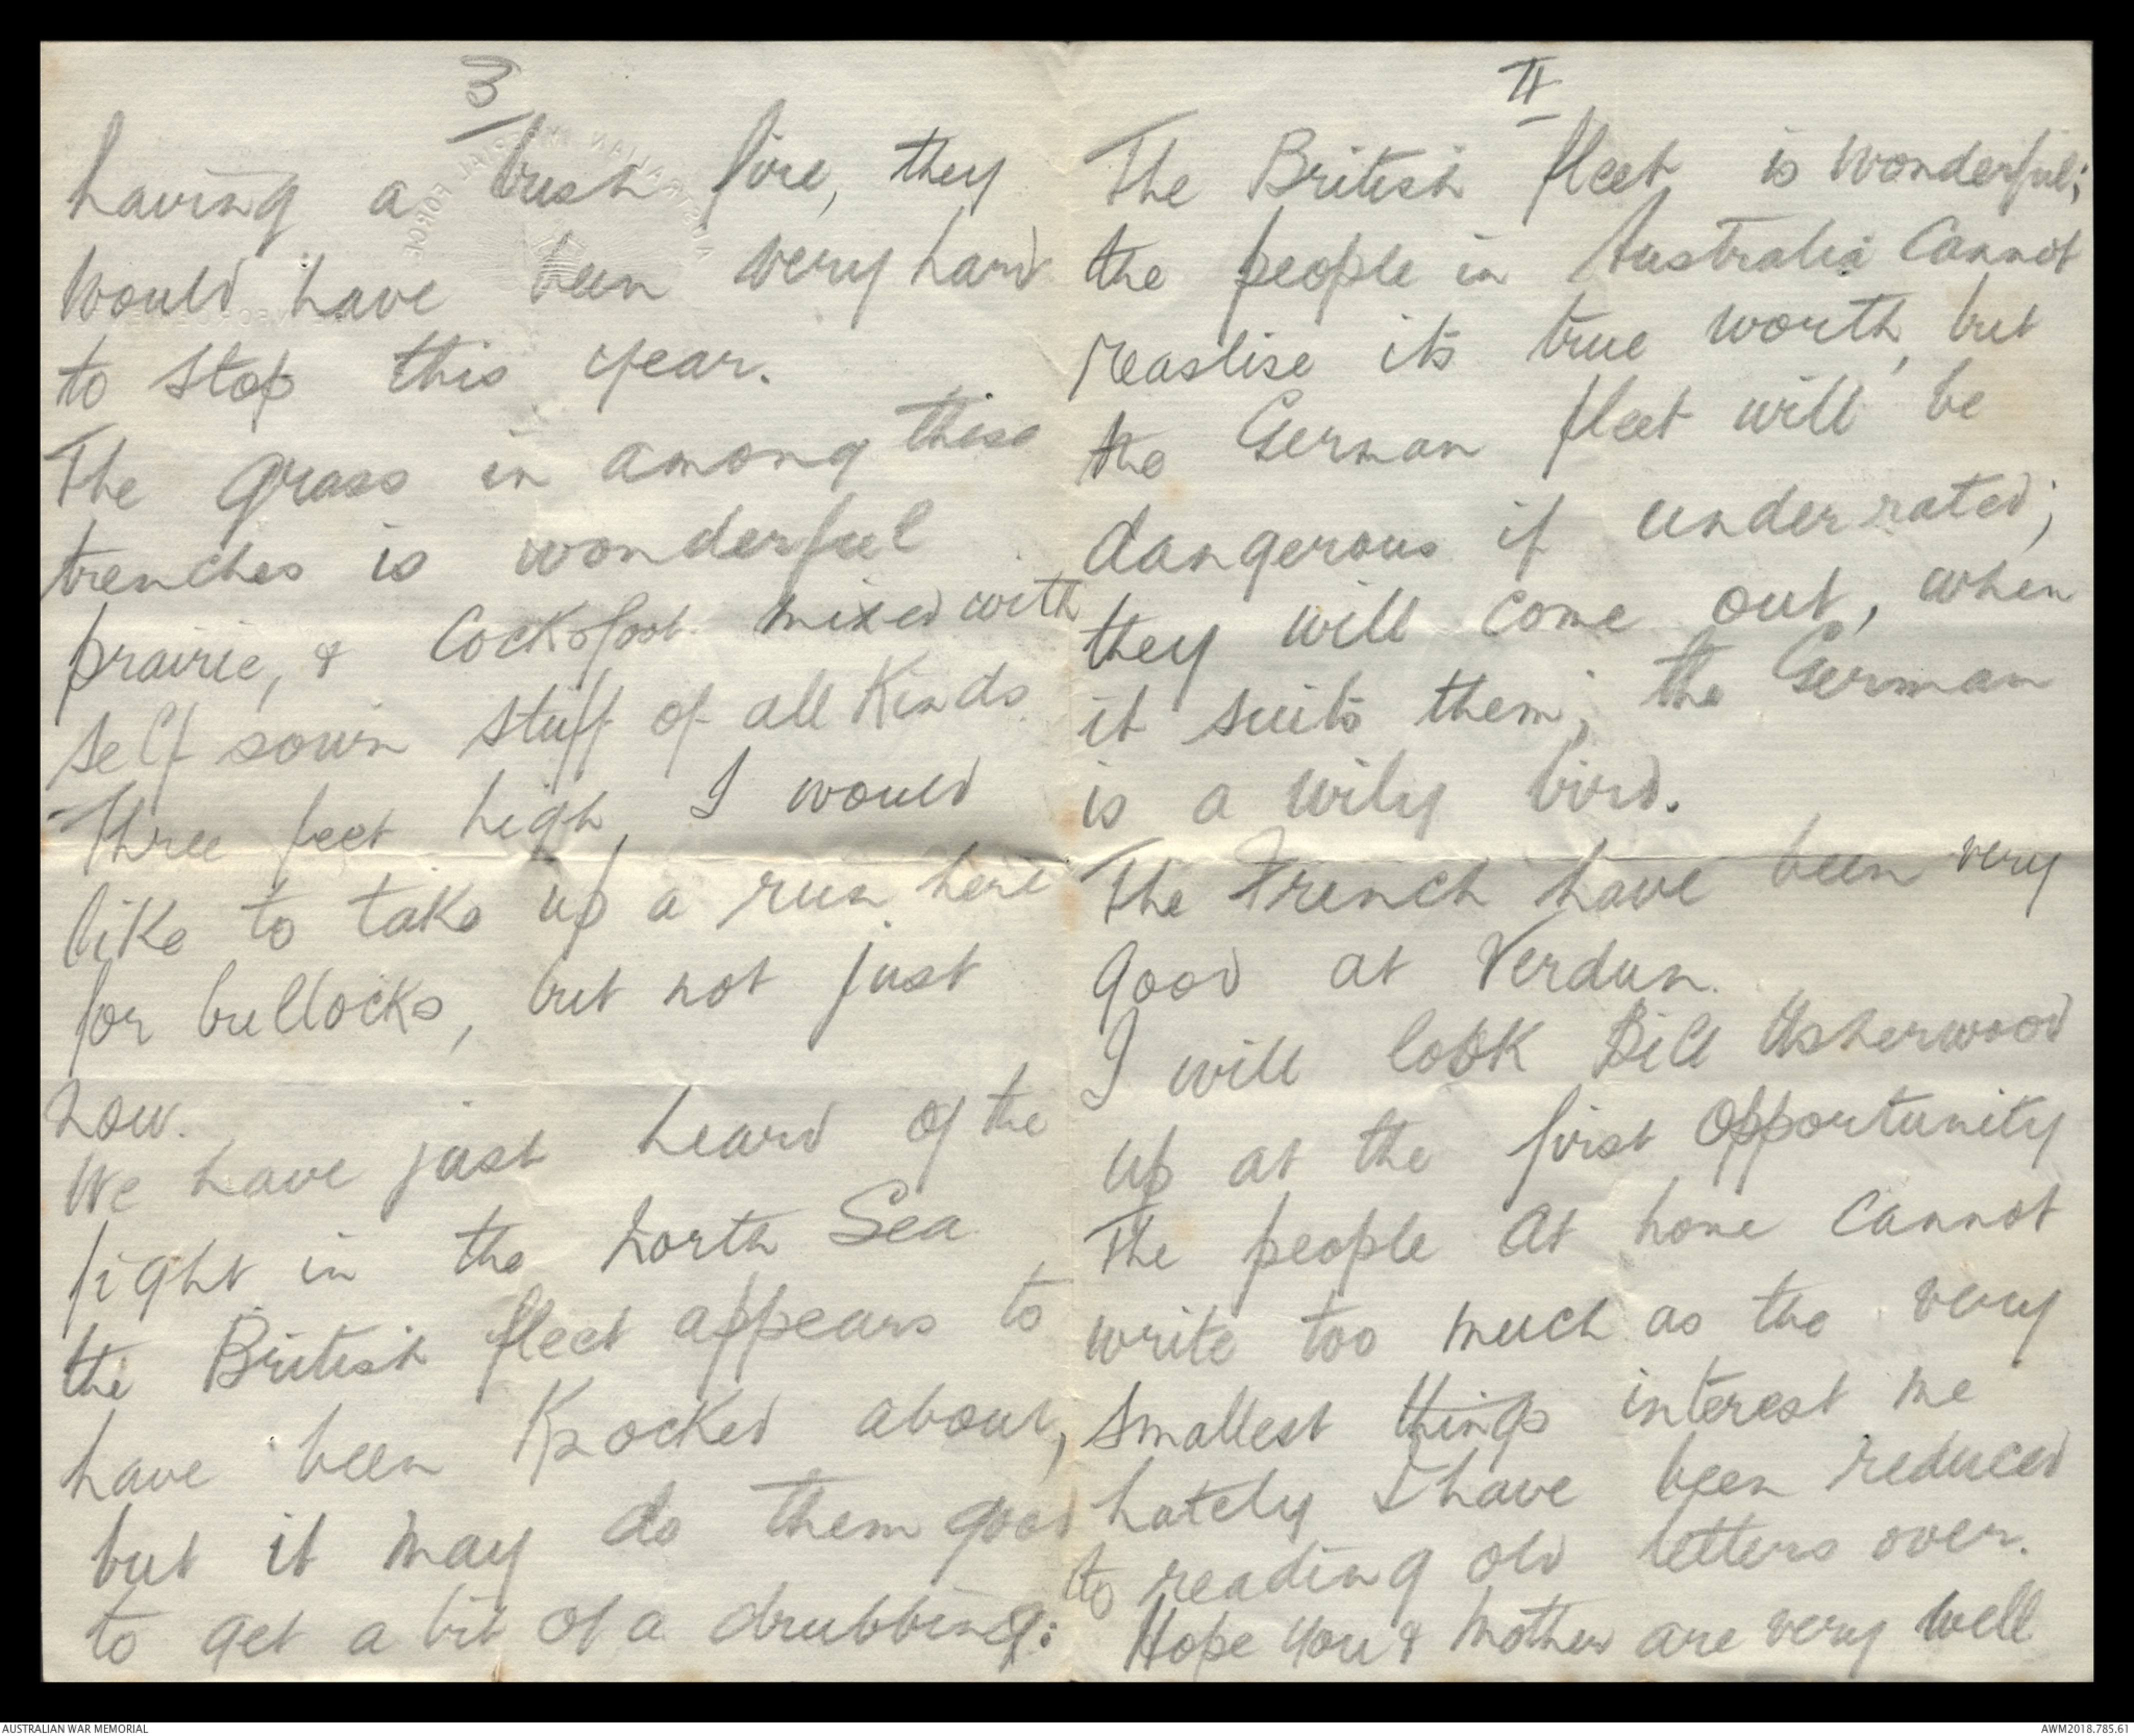 3
having a bush fire, they
would have been very hard
to stop this year.
The grass in among these
trenches is wonderful
prairie, & Cocksfoot mixed with
self sown stuff of all kinds
three feet high, I would
like to take up a run here
for bullocks, but not just
now.
We have just heard of the
fight in the North Sea
the British fleet appears to
have been knocked about,
but it may do them good
to get a bit of a drubbing:
II
The British fleet is wonderful;
the people in Australia Cannot
reaslise its true worth, but
the German fleet will be
dangerous if under rated;
they will come out, when
it suits them; the German
is a wily bird.
The French have been very
good at Verdun.
I will look Bill Usherwood
up at the first opportunity
The people at home cannot
write too much as the very
smallest things interest me
Lately I have been reduced
to reading old letters over.
Hope you & Mother are very well
AUSTRALIAN WAR MEMORIAL
AWM2018.785.61